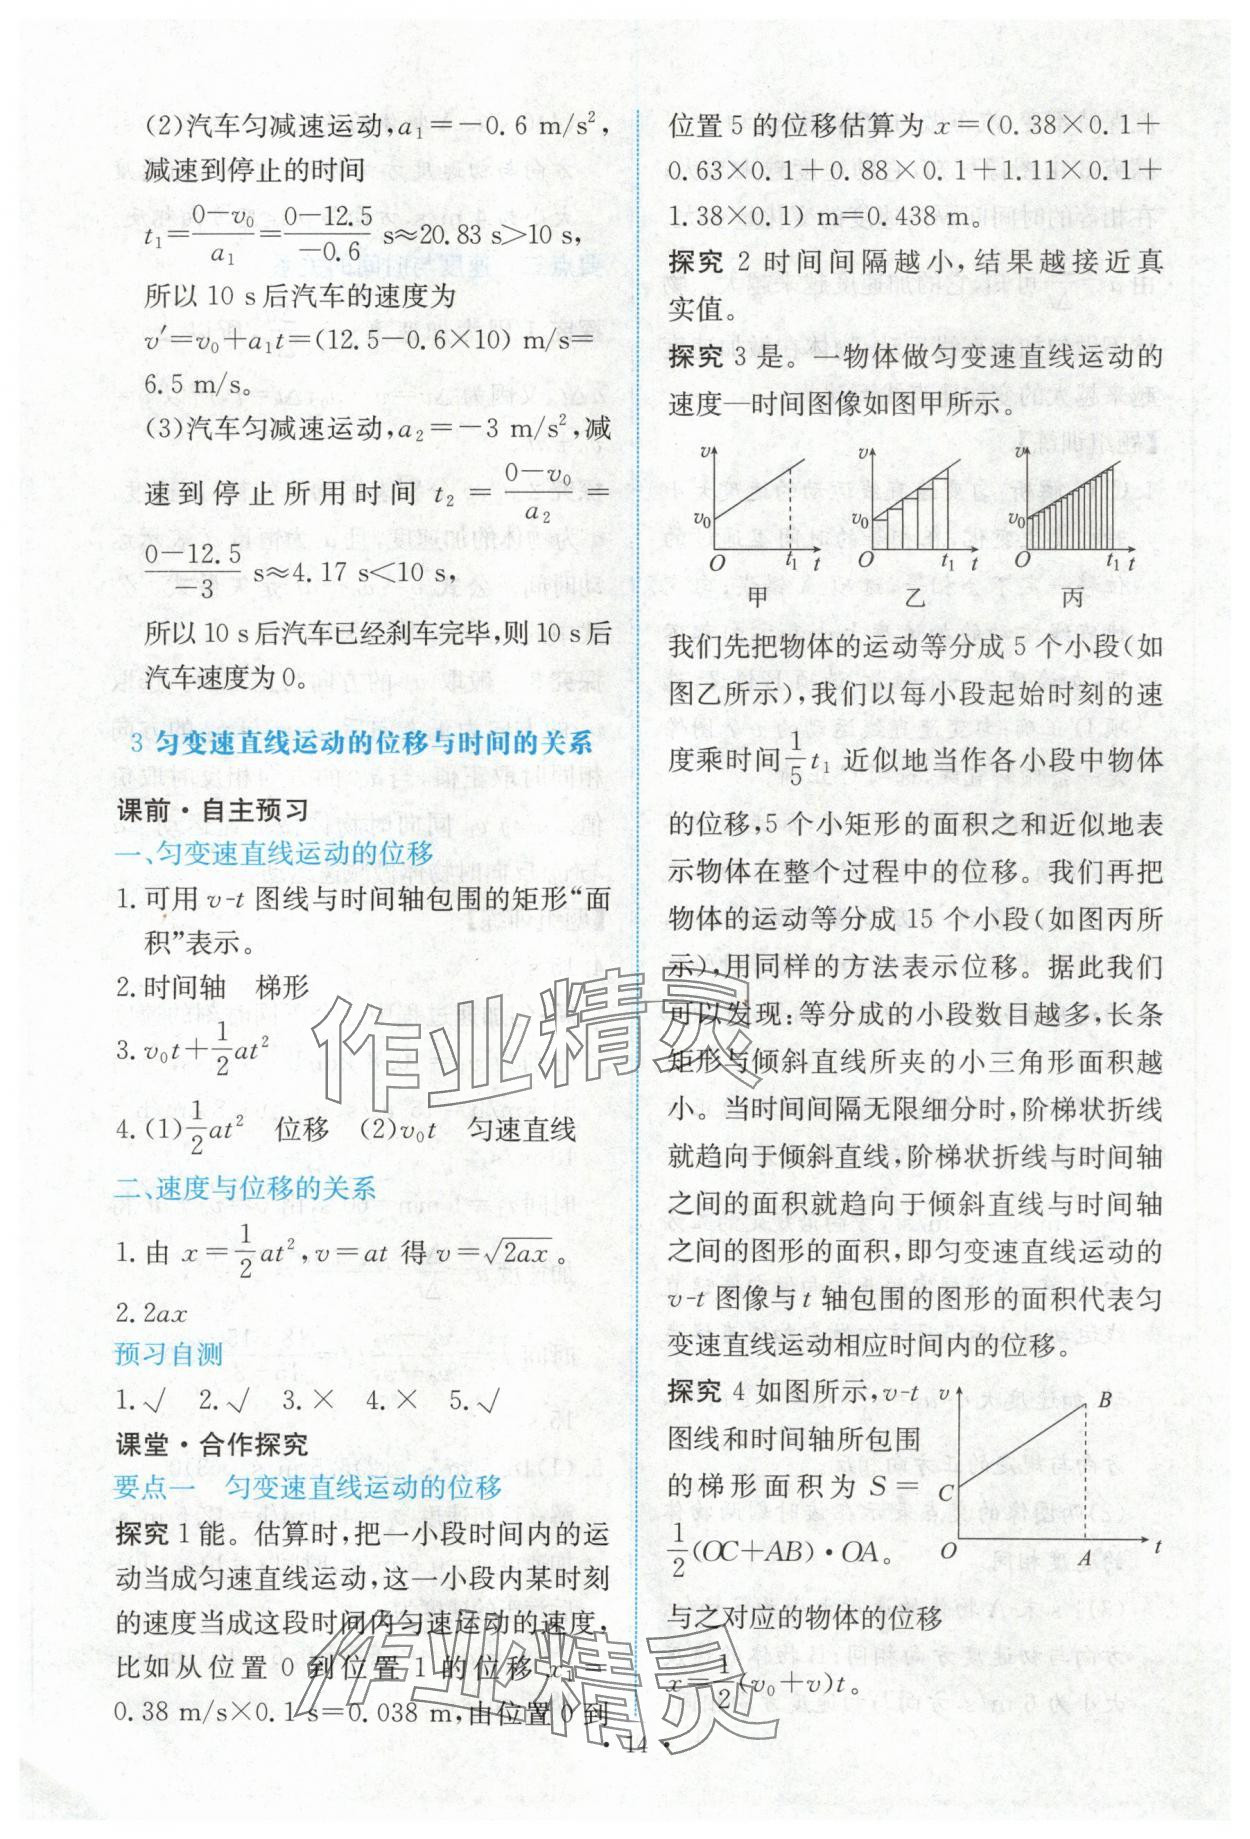 (2)汽车匀减速运动,a₁=-0.6 m/s²,
减速到停止的时间
t₁=\frac{0-v₀}{a₁}=\frac{0-12.5}{-0.6} s≈20.83 s>10 s,
所以 10 s后汽车的速度为
v′=v₀+a₁t=(12.5-0.6×10) m/s=
6.5 m/s。
(3)汽车匀减速运动,a₂=-3 m/s²,减
速到停止所用时间 t₂=\frac{0-v₀}{a₂}
\frac{0-12.5}{-3} s≈4.17 s<10 s,
所以 10 s后汽车已经刹车完毕,则 10 s后
汽车速度为0。
3 匀变速直线运动的位移与时间的关系
课前·自主预习
一、匀变速直线运动的位移
1.可用 v-t 图线与时间轴包围的矩形“面
积”表示。
2.时间轴 梯形
3.v₀t+\frac{1}{2}at²
4.(1)\frac{1}{2}at² 位移 (2)v₀t 匀速直线
二、速度与位移的关系
1.由 x=\frac{1}{2}at²,v=at 得 v=\sqrt{2ax}。
2.2ax
预习自测
1.√ 2.√ 3.× 4.× 5.√
课堂·合作探究
要点一 匀变速直线运动的位移
探究 1 能。估算时,把一小段时间内的运
动当成匀速直线运动,这一小段内某时刻
的速度当成这段时间内匀速运动的速度,
比如从位置 0 到位置 1 的位移 x₁=
0.38 m/s×0.1 s=0.038 m,由位置 0 到
位置 5 的位移估算为 x=(0.38×0.1+
0.63×0.1+0.88×0.1+1.11×0.1+
1.38×0.1) m=0.438 m。
探究 2 时间间隔越小,结果越接近真
实值。
探究 3 是。一物体做匀变速直线运动的
速度—时间图像如图甲所示。
v v₀ O t₁ t
甲
v v₀ O t₁ t
乙
v v₀ O t₁ t
丙
我们先把物体的运动等分成 5 个小段(如
图乙所示),我们以每小段起始时刻的速
度乘时间\frac{1}{5}t₁ 近似地当作各小段中物体
的位移,5 个小矩形的面积之和近似地表
示物体在整个过程中的位移。我们再把
物体的运动等分成 15 个小段(如图丙所
示),用同样的方法表示位移。据此我们
可以发现:等分成的小段数目越多,长条
矩形与倾斜直线所夹的小三角形面积越
小。当时间间隔无限细分时,阶梯状折线
就趋向于倾斜直线,阶梯状折线与时间轴
之间的面积就趋向于倾斜直线与时间轴
之间的图形的面积,即匀变速直线运动的
v-t 图像与 t 轴包围的图形的面积代表匀
变速直线运动相应时间内的位移。
探究 4 如图所示,v-t
图线和时间轴所包围
的梯形面积为 S=
\frac{1}{2}(OC+AB)·OA。
v B C O A t
与之对应的物体的位移
x=\frac{1}{2}(v₀+v)t。
·14·
作业精灵
作业精灵